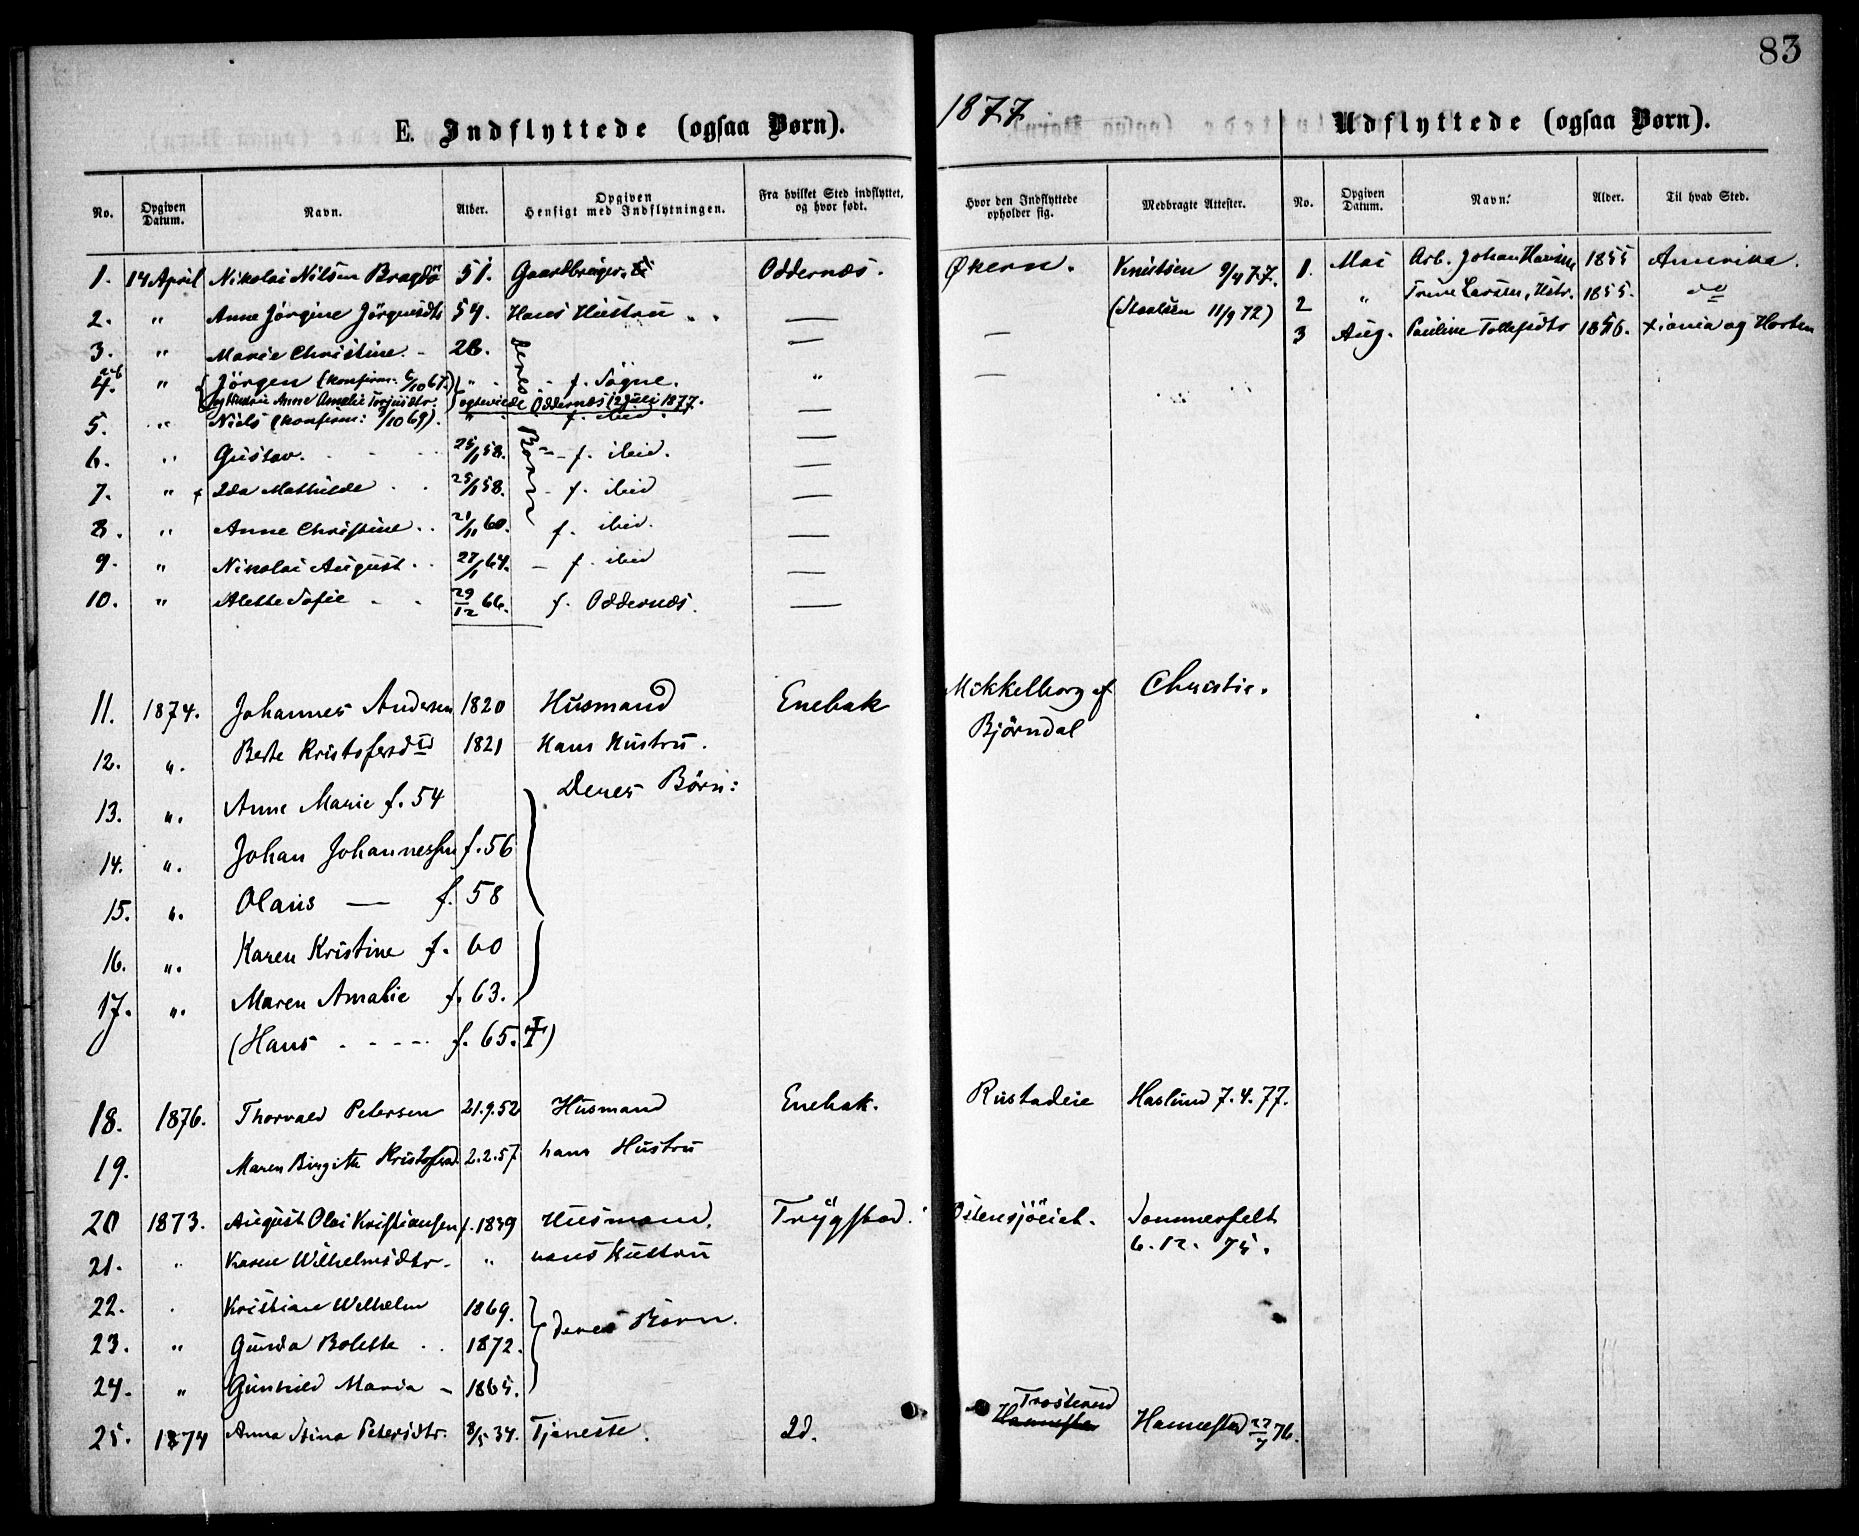 83
1877
E. Indflyttede (ogsaa Børn).
No. Opgiven Datum. Navn. Alder. Opgiven Hensigt med Indflytningen. Fra hvilket Sted indflyttet, og hvor født. Hvor den Indflyttede opholder sig. Medbragte Attester.
1. 14 April Nikolai Nilsen Bragdö 51. Gaardbruger Oddernæs. Økern. Knutsen 9/4 77.
2. " Anne Jörgine Jörgensdtr 54. Hans Hustru — (Staalsen 11/9 72)
3. " Marie Christine 26. Deres — —
4. " Jörgen (konfirm: 6/10 67.) " f. Sögne. " —
og Hustru Anne Amalie Torjusdtr. ogsviede Oddernæs 12 Juli 1877.
5. " Niels (konfirm: 3/10 69). " f. ibid. —
6. " Gustav 25/1 58. Børn f. ibid. —
7. " Ida Mathilde 25/1 58. f. ibid —
8. " Anne Christine 21/11 60. f. ibid. —
9. " Nikolai August 27/1 64. — f. ibid —
10. " Alette Sofie 29/12 66. f. Oddernæs. —
11. 1874. Johannes Andersen 1820 Husmand Enebak Mikkelborg af Bjørndal Christie.
12. " Berte Kristofersd 1821 Hans Hustru.
13. " Anne Marie f. 54 Deres Børn:
14. " Johan Johannessen f. 56
15. " Olaus — f. 58
16. " Karen Kristine f. 60
17. " Maren Amalie f. 63.
(Hans - - - - f. 65. †)
18. 1876. Thorvald Petersen 21.9.52 Husmand Enebak. Rustadeie Haslund 7.4.77.
19. Maren Birgitte Kristofersd. 2.2.57 hans Hustru
20 1873. August Olai Kristiansen f. 1839 Husmand. Trygstad. Østensjöeiet. Sommerfelt
6.12. 75.
21. " Karen Wilhelmsdtr. " hans Hustru
22. . Kristian Wilhelm 1869. deres Børn.
23. " Gunda Bolette . . 1872.
24. " Gunhild Maria - 1865.
25. 1874 Anna Stina Petersdtr. 8/5 34. Tjeneste. Id. Trosterud Hannestad 27/7 76.
Udflyttede (ogsaa Børn).
No. Opgiven Datum. Navn. Alder. Til hvad Sted.
1. Mai Arb. Johan Hansen 1855 Amerika.
2 " Trine Larsen, Hstr. 1855. do
3 Aug. Pauline Tollefsdtr 1856. Xiania og Horten